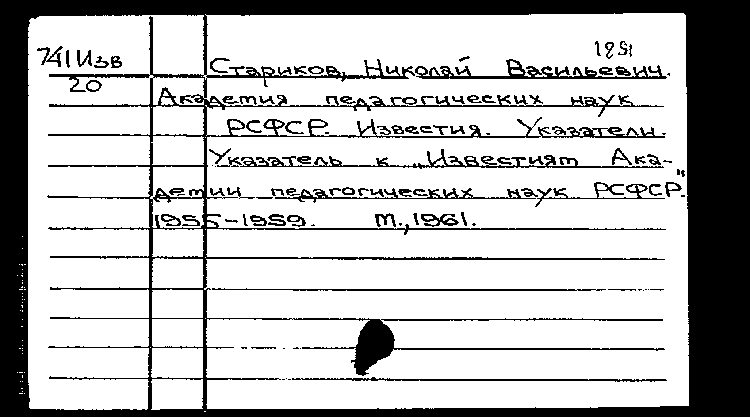 741 Изв
20
1951
Стариков, Николай Васильевич.
Академия педагогических наук
РСФСР. Известия. Указатели.
Указатель к „Известиям Ака-
демии педагогических наук РСФСР."
1955-1959. М., 1961.